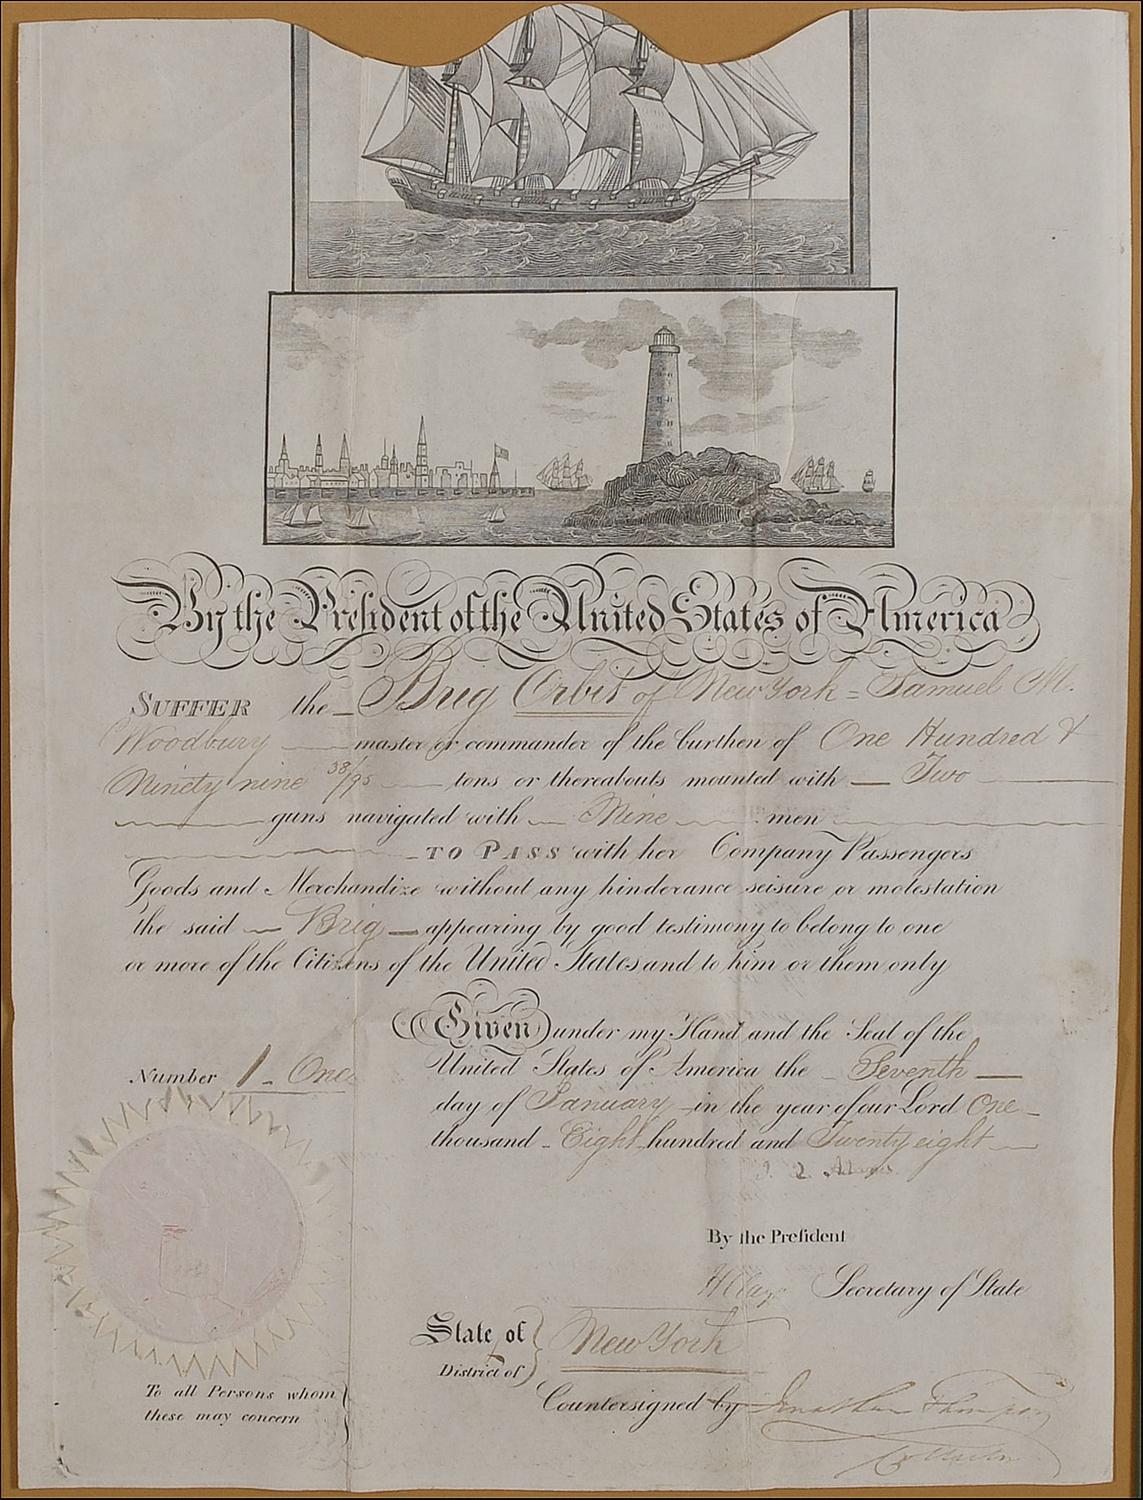 By the President of the United States of America
SUFFER the Brig Orbit of New York = Samuel M.
Woodbury master or commander of the burthen of One Hundred &
Ninety nine 38/95 tons or thereabouts mounted with Two
guns navigated with Nine men
TO PASS with her Company Passengers
Goods and Merchandize without any hinderance seisure or molestation
the said Brig appearing by good testimony to belong to one
or more of the Citizens of the United States and to him or them only
Given under my Hand and the Seal of the
United States of America the Seventh
day of January in the year of our Lord One
thousand Eight hundred and Twenty eight
Number 1 - One
J. Q. Adams
By the President
H Clay Secretary of State
State of
District of } New York
Countersigned by Jonathan Thompson
Collector
To all Persons whom
these may concern